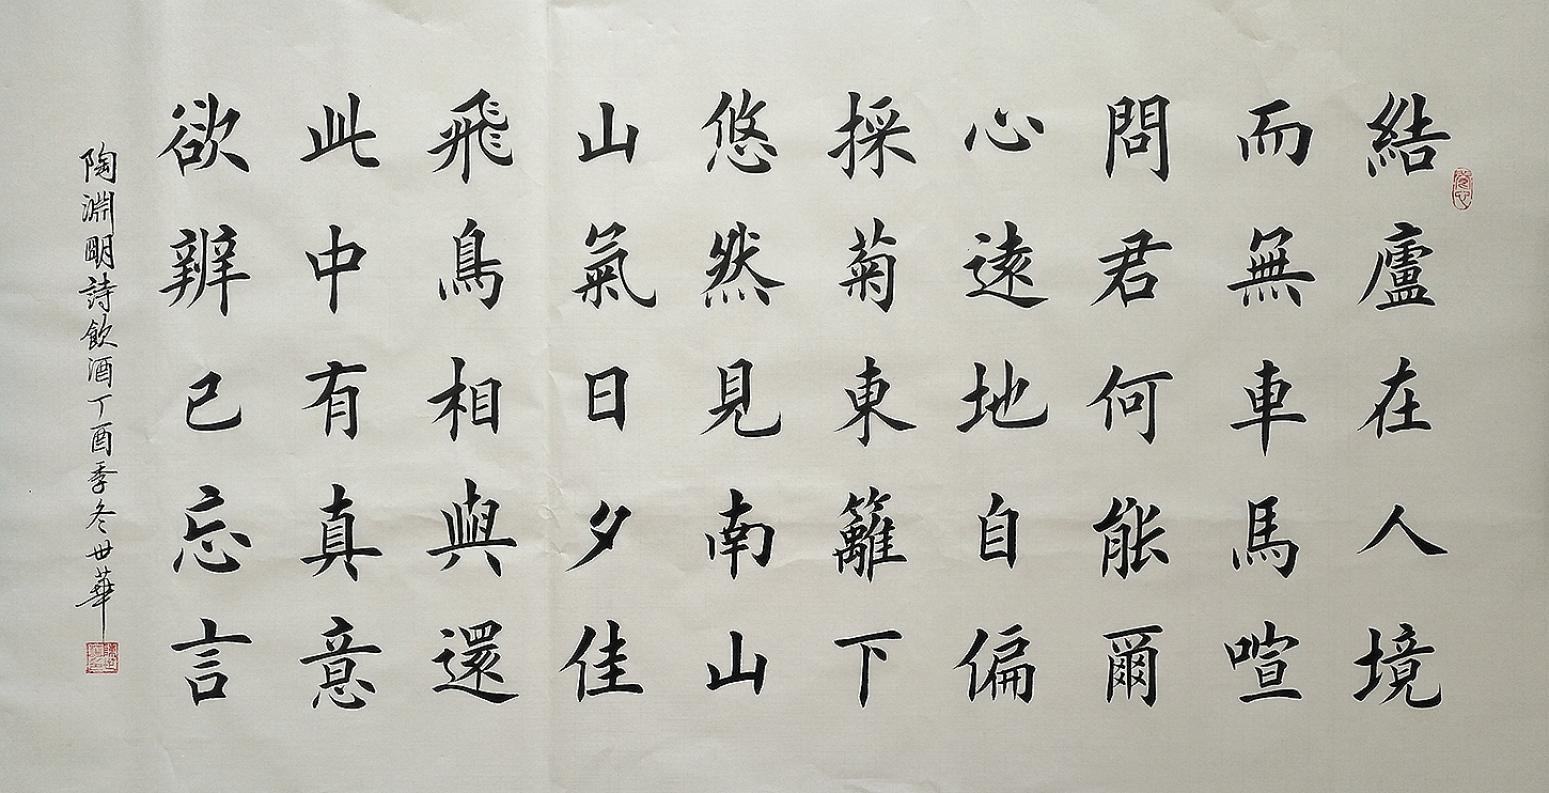 結廬在人境
而無車馬喧
問君何能爾
心遠地自偏
採菊東籬下
悠然見南山
山氣日夕佳
飛鳥相與還
此中有真意
欲辨已忘言
陶淵明詩飲酒丁酉季冬世華